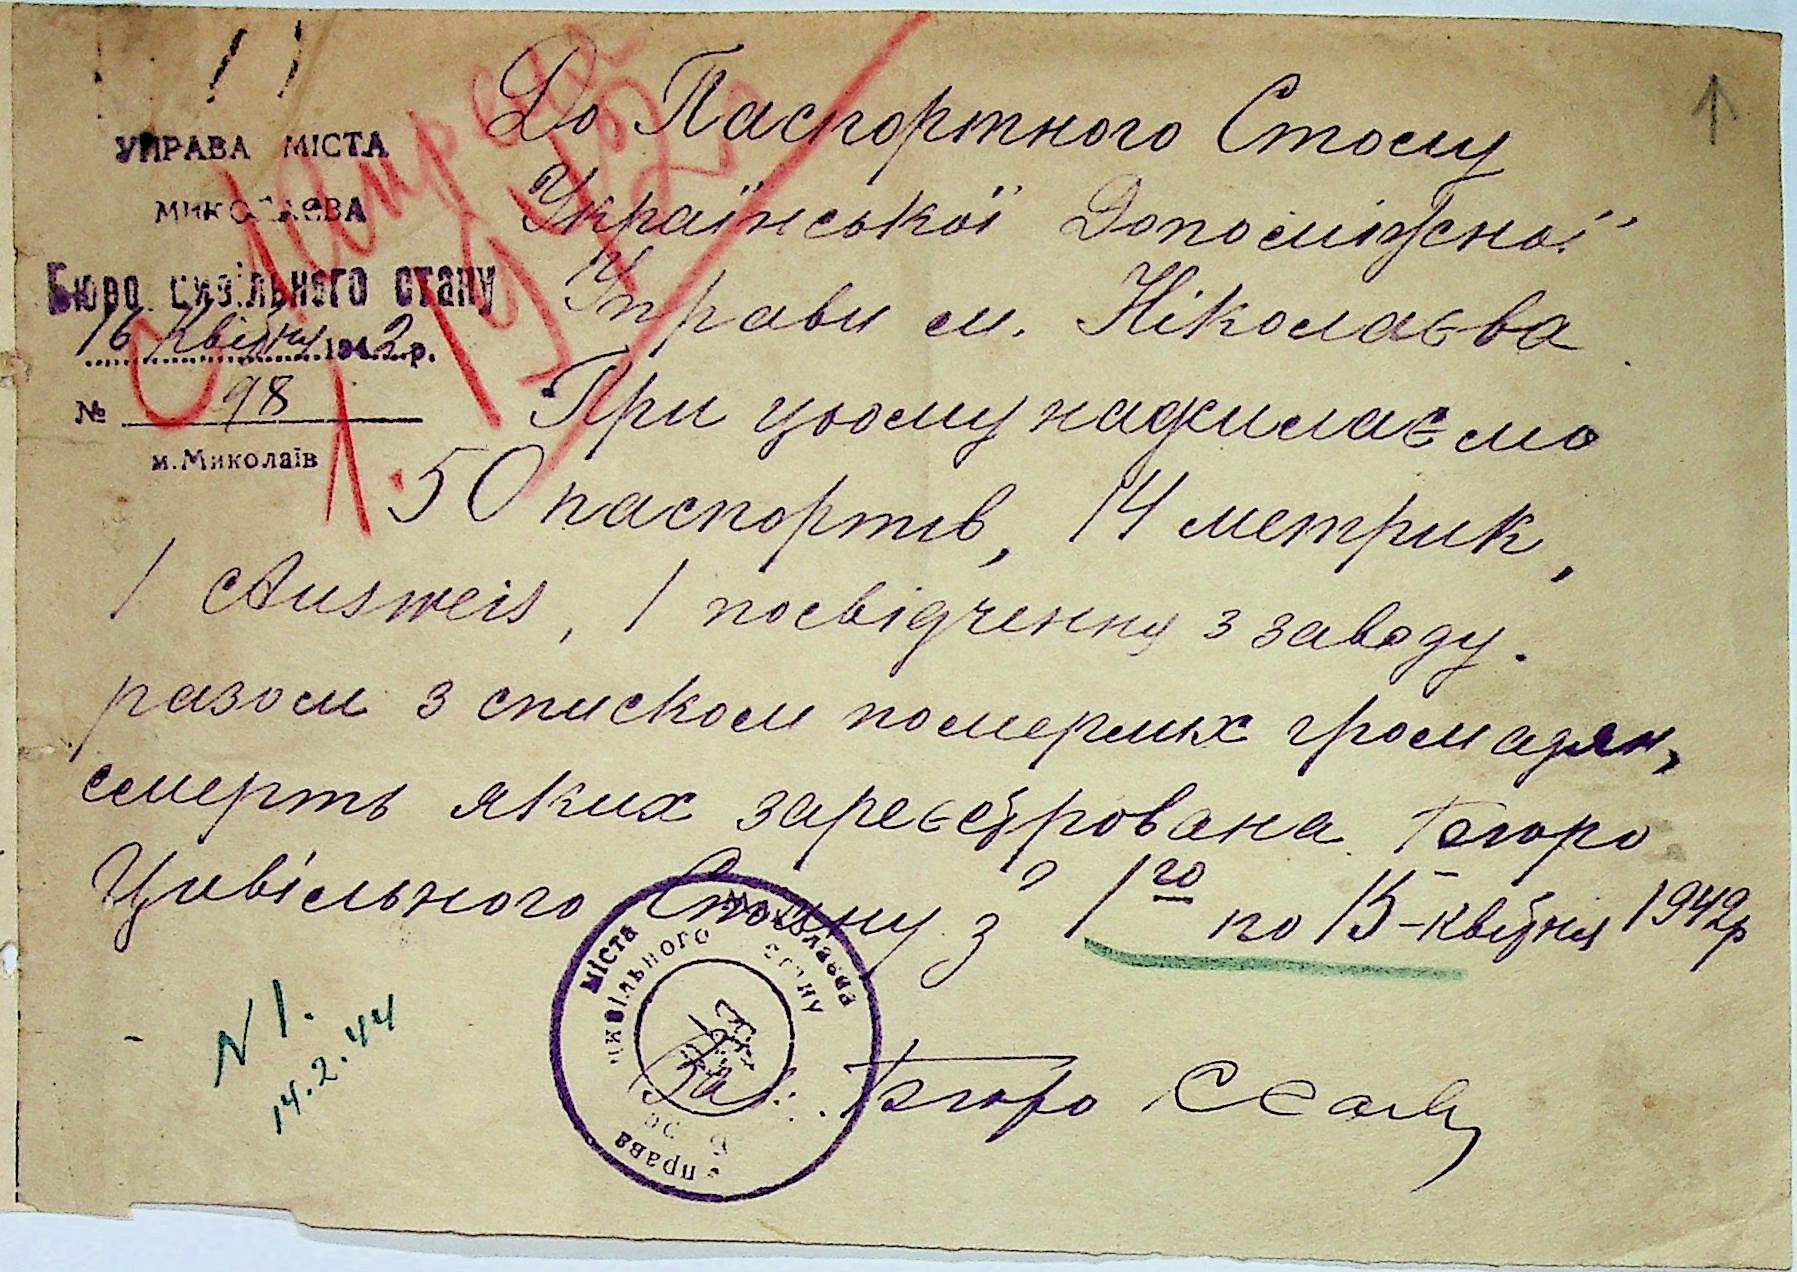 УПРАВА МІСТА
МИКОЛАЄВА
Бюро цивільного стану
16 Квітня 1942 р.
№ 98
м. Миколаїв
До Паспортного Столу
Української Допоміжної
Управи м. Ніколаєва
При цьому надсилаємо
50 паспортів, 14 метрик,
1 Ausweis, 1 посвідчення з заводу.
разом з списком померлих громадян,
смерть яких зареєстрована Бюро
Цивільного Стану з 1го по 15-квітня 1942р
міста Миколаєва
Управа
цивільного стану
Зав. Бюро
N 1.
14.2.44